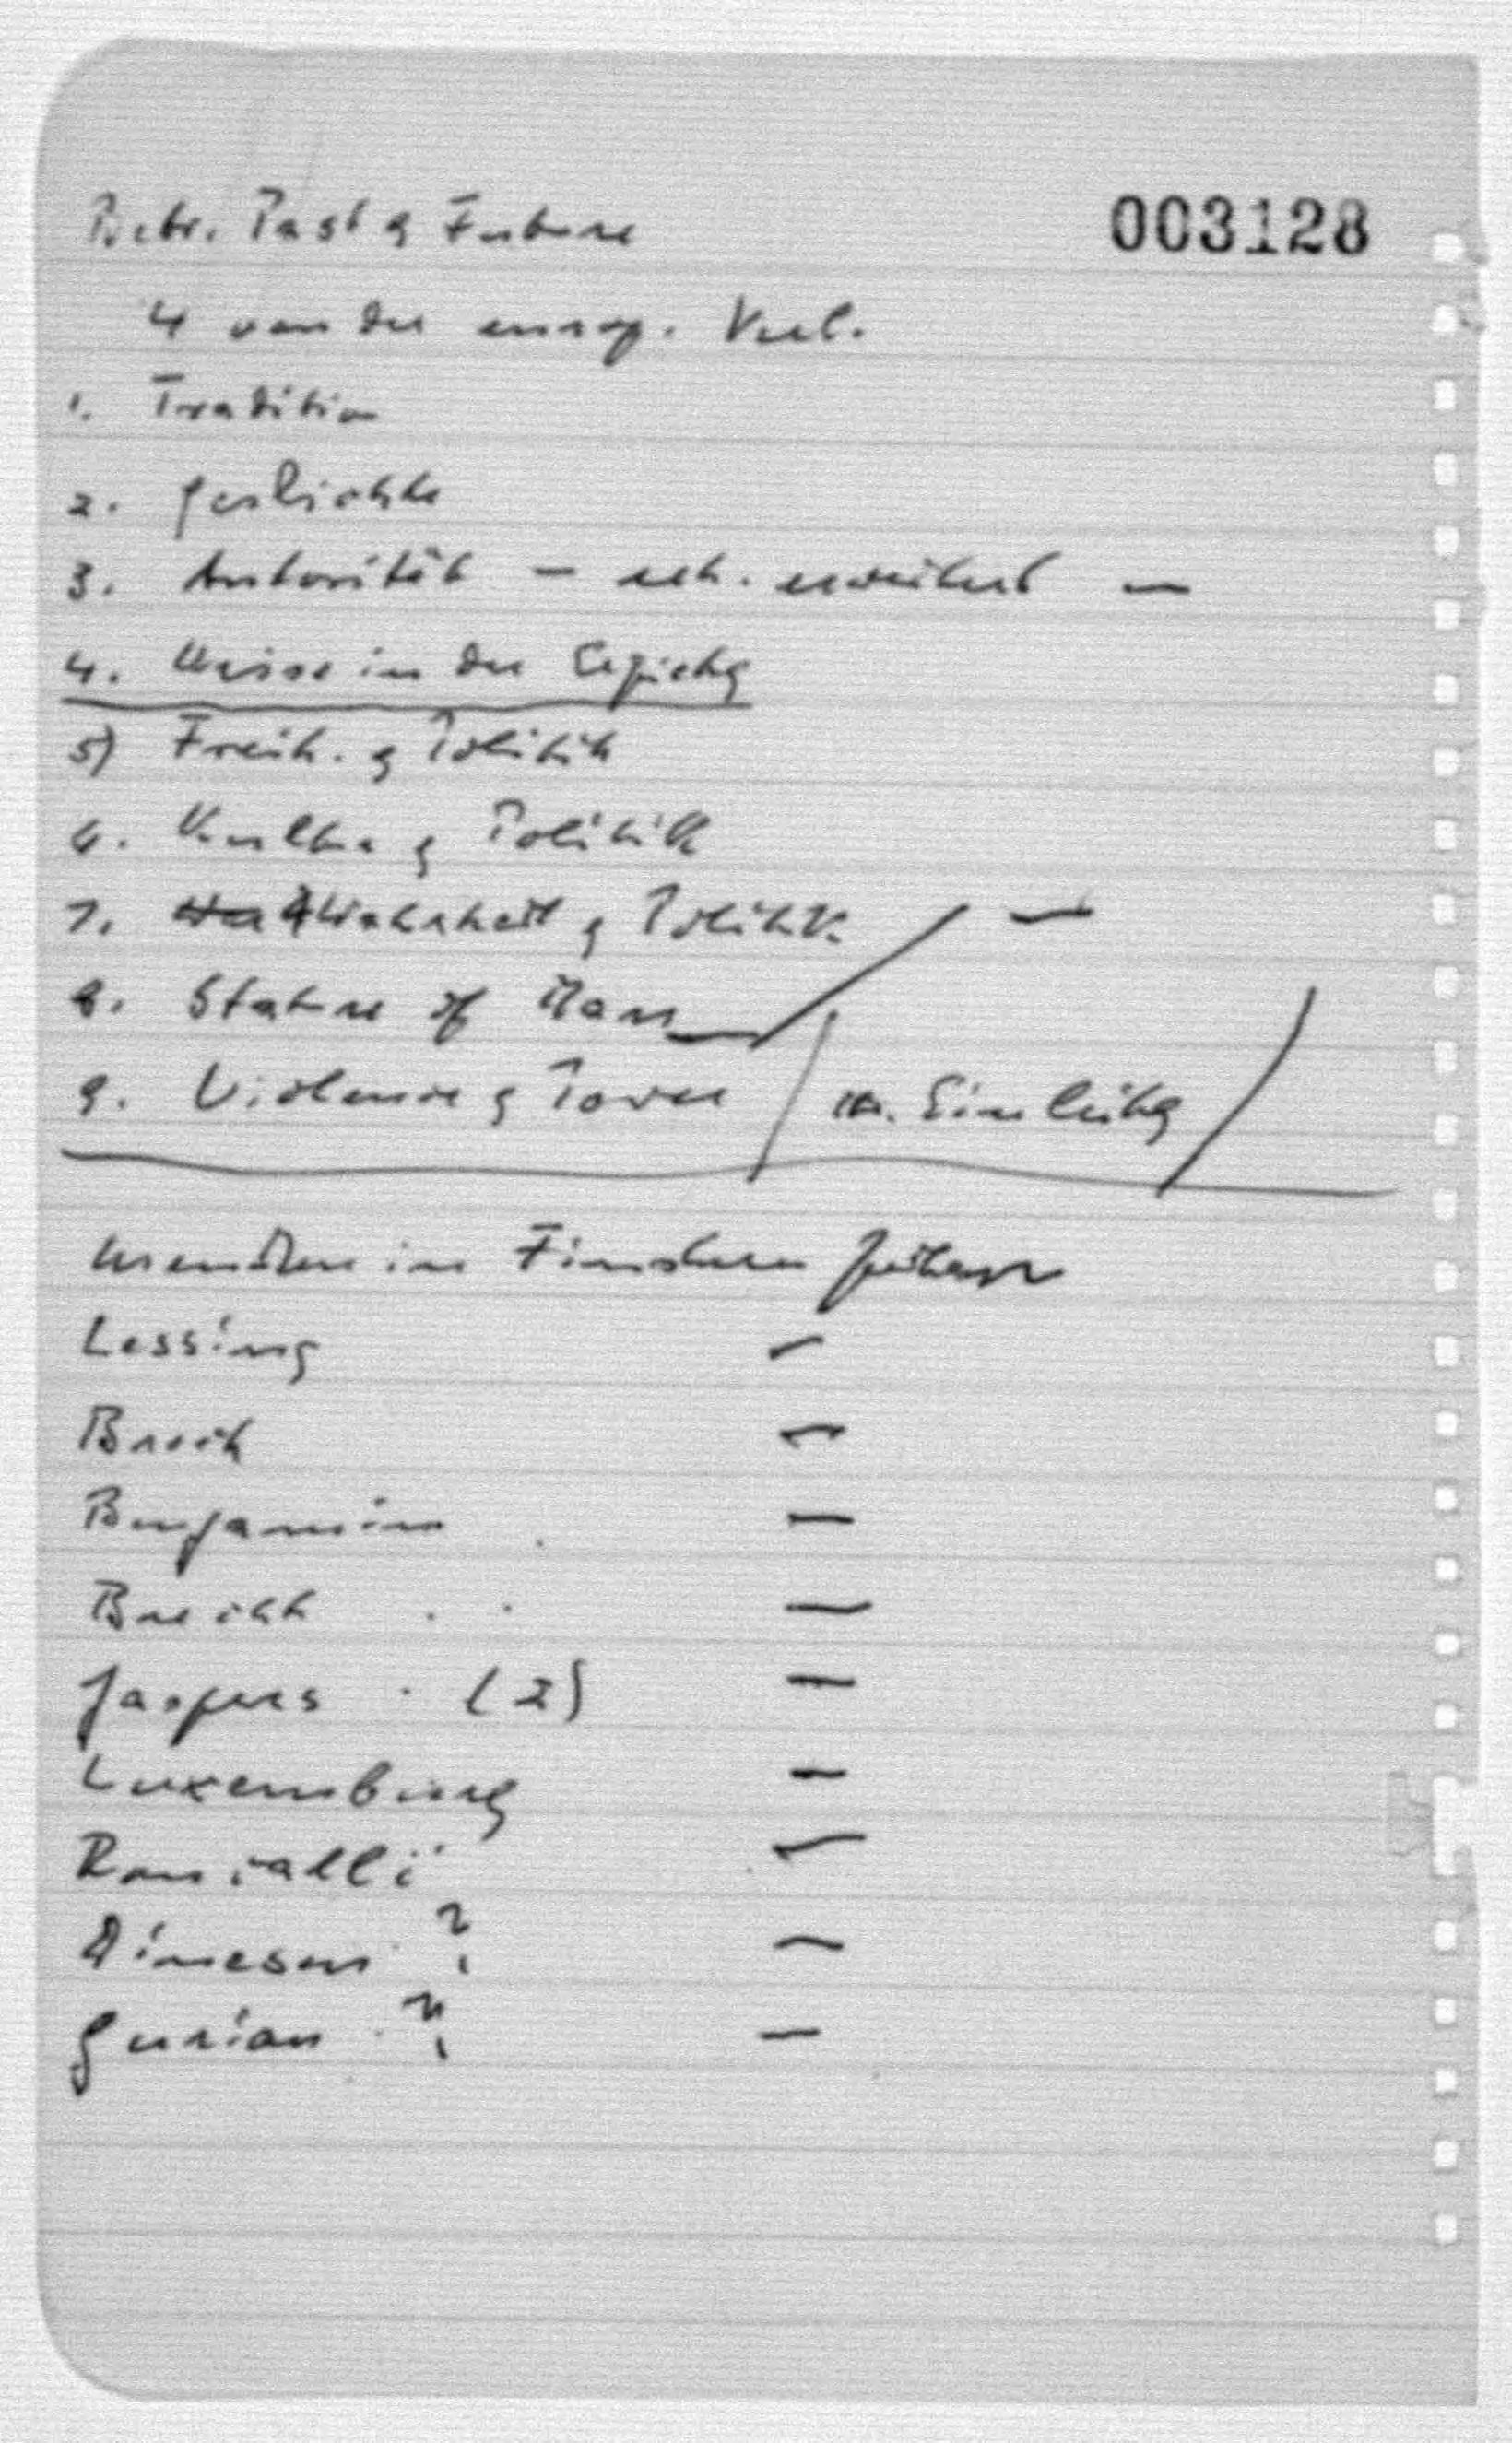 Betw. Past & Future
003128
4 von der europ. Verl.
1. Tradition
2. Geschichte
3. Autorität – sch. erweitert –
4. Krise in der Erziehg
5) Freih. & Politik
6. Kultur & Politik
7. Wahrheit & Politik –
8. Stature of Man
9. Violence & Power / m. Einleitg /
Menschen in Finsteren Zeiten
Lessing –
Broch –
Benjamin –
Brecht –
Jaspers (2) –
Luxemburg –
Roncalli –
Dinesen ? –
Gurian ? –